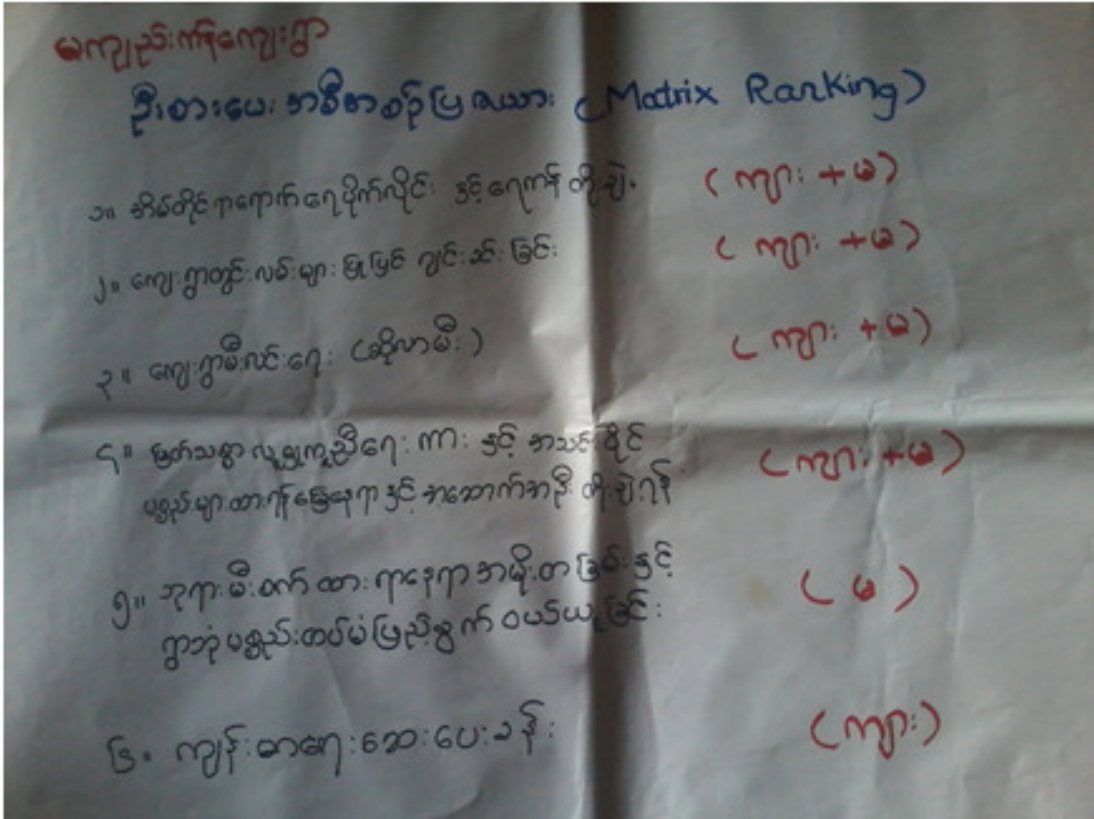 မကျည်းကန်ကျေးရွာ
ဦးစားပေး အစီအစဉ်ပြ ဇယား (Matrix Ranking)
၁။ အိမ်တိုင်ရာရောက်ရေပိုက်လိုင်း နှင့်ရေကန် တိုးချဲ့ (ကျား + မ)
၂။ ကျေးရွာတွင်းလမ်းများ ပြုပြင် ကျင်းခင်း ခြင်း (ကျား + မ)
၃။ ကျေးရွာမီးလင်းရေး (ဆိုလာမီး) (ကျား + မ)
၄။ မြတ်သစ္စာ လူမှုကူညီရေး ကား နှင့် အသင်းပိုင် (ကျား + မ)
ပစ္စည်းများထားရန်မြေနေရာ နှင့် အဆောက်အဦး တိုးချဲ့ရန်
၅။ ဘုရားမီးစက် ထားရာနေရာ အမိုးတ နှင့် (မ)
ရွာဘုံပစ္စည်းတပ်မံဖြည့်စွက် ဝယ်ယူခြင်း
၆။ ကျန်းမာရေးဆေးပေးခန်း (ကျား)